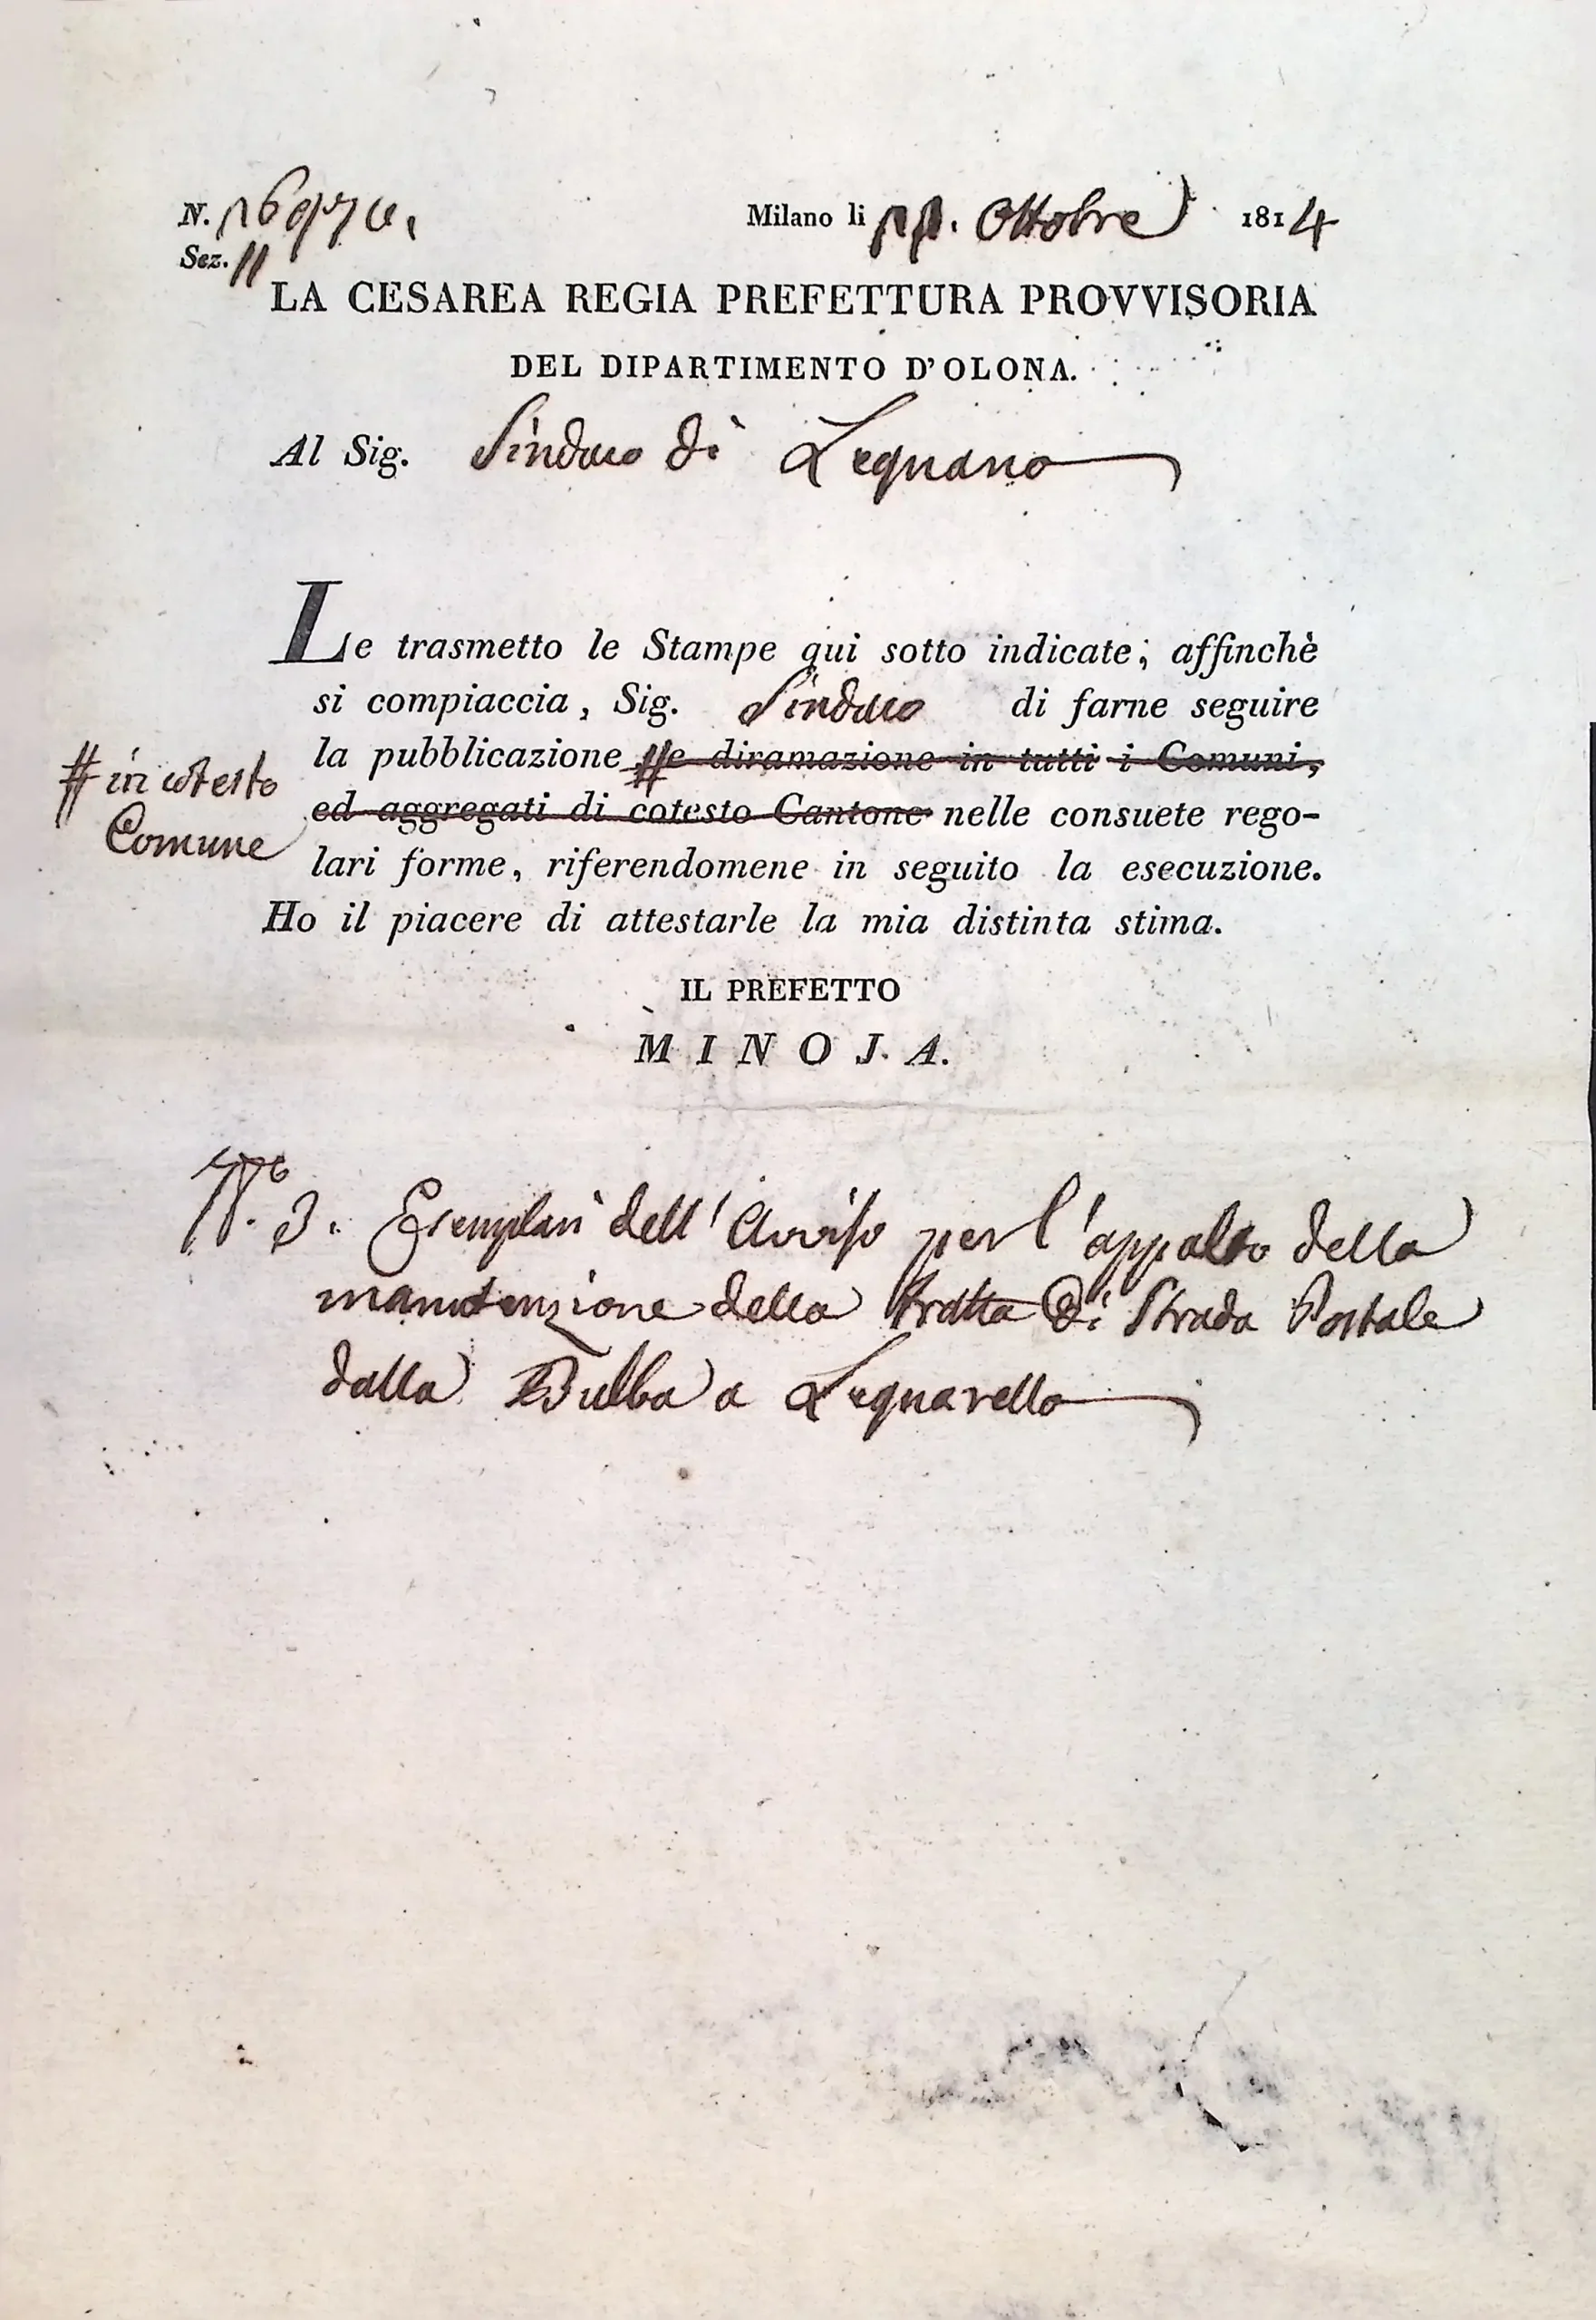 N. 16970.
Milano li 11. Ottobre 1814
Sez. II
LA CESAREA REGIA PREFETTURA PROVVISORIA
DEL DIPARTIMENTO D'OLONA.
Al Sig. Sindaco di Legnano
Le trasmetto le Stampe qui sotto indicate; affinchè
si compiaccia, Sig. Sindaco di farne seguire
la pubblicazione # e diramazione in tutti i Comuni,
# in cotesto
Comune
ed aggregati di cotesto Cantone nelle consuete rego-
lari forme, riferendomene in seguito la esecuzione.
Ho il piacere di attestarle la mia distinta stima.
IL PREFETTO
MINOJA.
N.° 3. Esemplari dell'Avviso per l'appalto della
manutenzione della tratta di Strada Postale
dalla Bulba a Legnarello